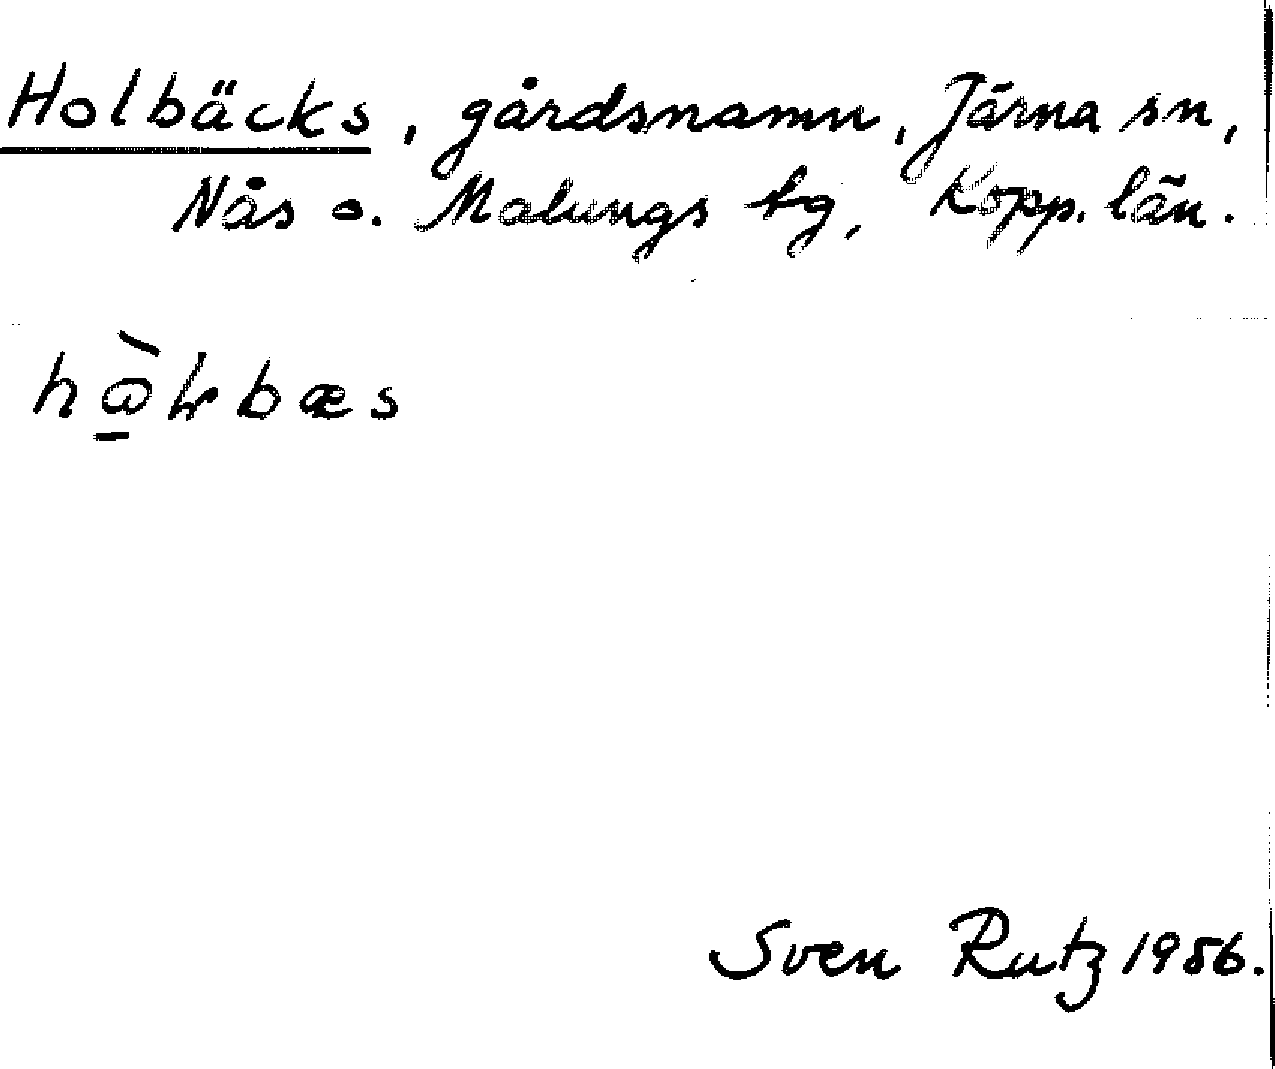 Holbäcks, gårdsnamn, Järna sn,
Nås o. Malungs tg, Kopp. län.
Sven Rutz 1956.